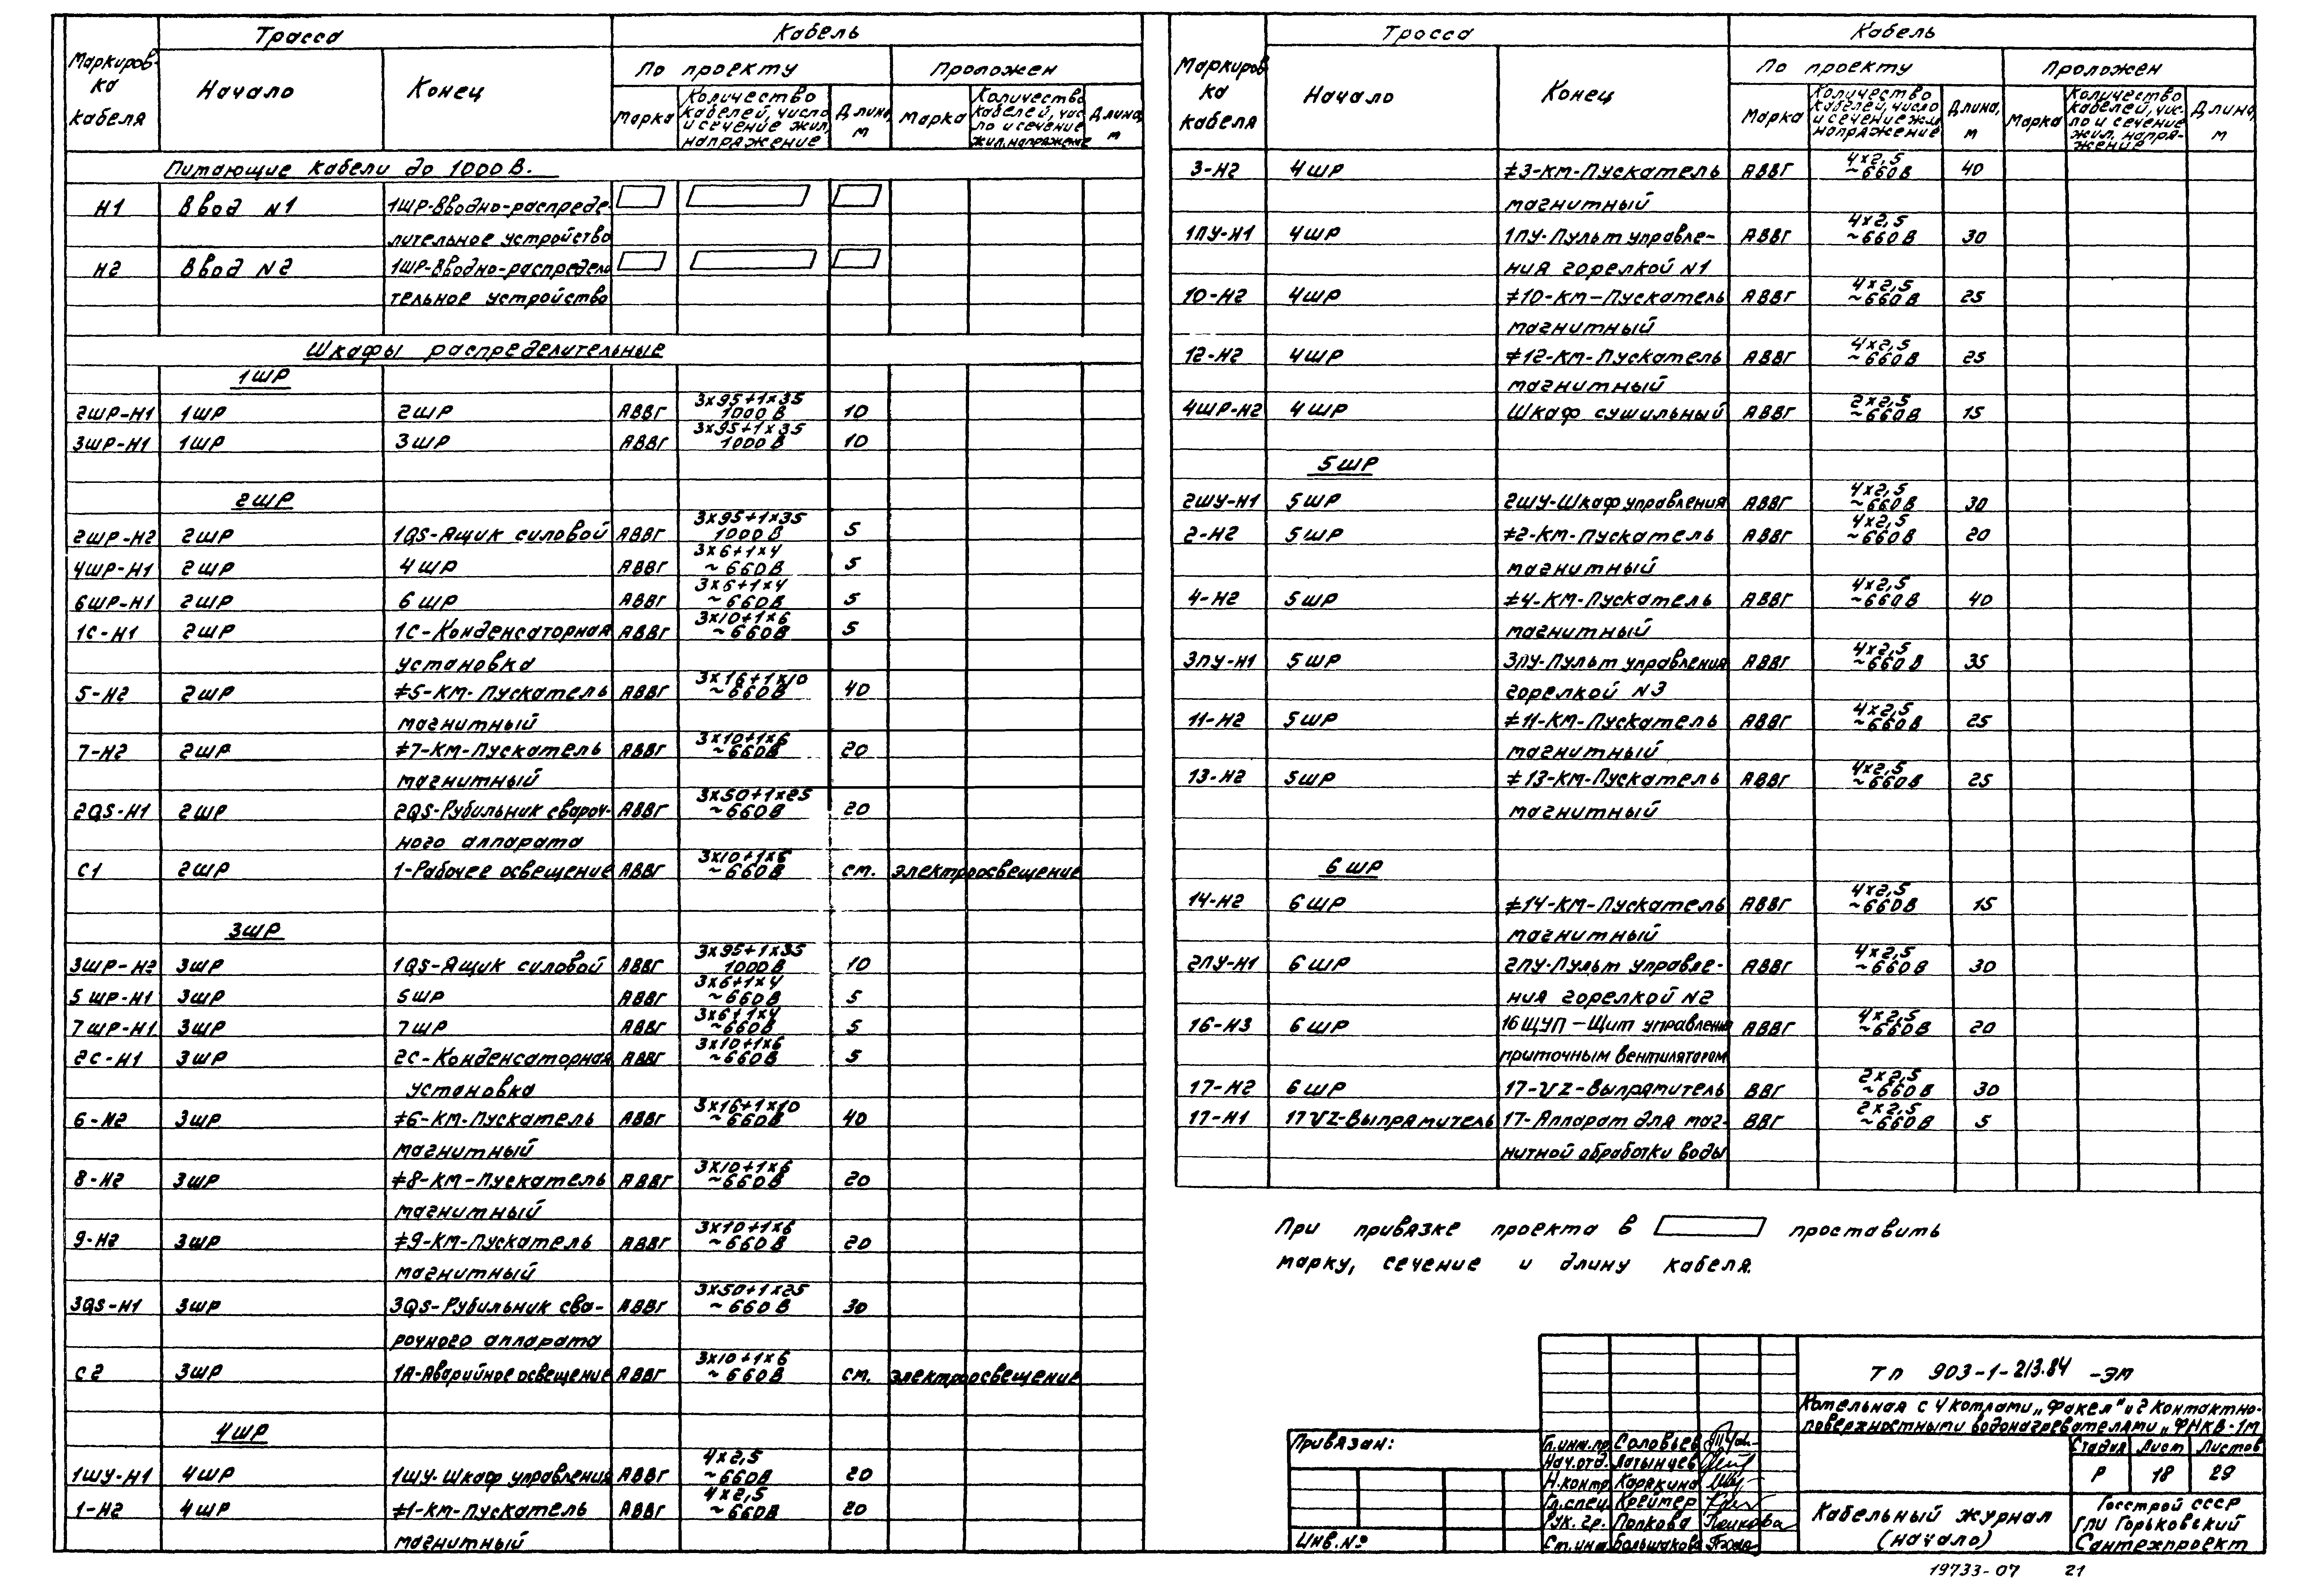 Маркиров-
ка
кабеля
Трасса
Кабель
Начало
Конец
По проекту
Проложен
Марка
Количество
кабелей, число
и сечение жил,
напряжение
Длина,
м
Марка
Количество
кабелей, чис-
ло и сечение
жил, напряжение
Длина,
м
Питающие кабели до 1000 В.
Н1 Ввод N1 1ШР-Вводно-распреде-
лительное устройство
Н2 Ввод N2 1ШР-Вводно-распредели
тельное устройство
Шкафы распределительные
1ШР
3х95+1х35
2ШР-Н1 1ШР 2ШР АВВГ 1000 В 10
3х95+1х35
3ШР-Н1 1ШР 3ШР АВВГ 1000 В 10
2ШР
3х95+1х35
2ШР-Н2 2ШР 1QS-Ящик силовой АВВГ 1000 В 5
3х6+1х4
4ШР-Н1 2ШР 4ШР АВВГ ~660В 5
3х6+1х4
6ШР-Н1 2ШР 6ШР АВВГ ~660В 5
3х10+1х6
1С-Н1 2ШР 1С-Конденсаторная АВВГ ~660В 5
установка
3х16+1х10
5-Н2 2ШР ≠5-КМ-Пускатель АВВГ ~660В 40
магнитный
3х10+1х6
7-Н2 2ШР ≠7-КМ-Пускатель АВВГ ~660В 20
магнитный
3х50+1х25
2QS-Н1 2ШР 2QS-Рубильник свароч- АВВГ ~660В 20
ного аппарата
3х10+1х6
С1 2ШР 1-Рабочее освещение АВВГ ~660В см. электроосвещение
3ШР
3х95+1х35
3ШР-Н2 3ШР 1QS-Ящик силовой АВВГ 1000В 10
3х6+1х4
5ШР-Н1 3ШР 5ШР АВВГ ~660В 5
3х6+1х4
7ШР-Н1 3ШР 7ШР АВВГ ~660В 5
3х10+1х6
2С-Н1 3ШР 2С-Конденсаторная АВВГ ~660В 5
установка
3х16+1х10
6-Н2 3ШР ≠6-КМ-Пускатель АВВГ ~660В 40
магнитный
3х10+1х6
8-Н2 3ШР ≠8-КМ-Пускатель АВВГ ~660В 20
магнитный
3х10+1х6
9-Н2 3ШР ≠9-КМ-Пускатель АВВГ ~660В 20
магнитный
3х50+1х25
3QS-Н1 3ШР 3QS-Рубильник сва- АВВГ ~660В 30
рочного аппарата
3х10+1х6
С2 3ШР 1А-Аварийное освещение АВВГ ~660В см. электроосвещение
4ШР
4х2,5
1ШУ-Н1 4ШР 1ШУ-Шкаф управления АВВГ ~660В 20
4х2,5
1-Н2 4ШР ≠1-КМ-Пускатель АВВГ ~660В 20
магнитный
Маркиров
ка
кабеля
Трасса
Кабель
Начало
Конец
По проекту
Проложен
Марка
Количество
кабелей, число
и сечение жил
напряжение
Длина,
м
Марка
Количество
кабелей, чис-
ло и сечение
жил, напря-
жение
Длина,
м
4х2,5
3-Н2 4ШР ≠3-КМ-Пускатель АВВГ ~660В 40
магнитный
4х2,5
1ПУ-Н1 4ШР 1ПУ-Пульт управле- АВВГ ~660В 30
ния горелкой N1
4х2,5
10-Н2 4ШР ≠10-КМ-Пускатель АВВГ ~660В 25
магнитный
4х2,5
12-Н2 4ШР ≠12-КМ-Пускатель АВВГ ~660В 25
магнитный
2х2,5
4ШР-Н2 4ШР Шкаф сушильный АВВГ ~660В 15
5ШР
4х2,5
2ШУ-Н1 5ШР 2ШУ-Шкаф управления АВВГ ~660В 30
4х2,5
2-Н2 5ШР ≠2-КМ-Пускатель АВВГ ~660В 20
магнитный
4х2,5
4-Н2 5ШР ≠4-КМ-Пускатель АВВГ ~660В 40
магнитный
4х2,5
3ПУ-Н1 5ШР 3ПУ-Пульт управления АВВГ ~660В 35
горелкой N3
4х2,5
11-Н2 5ШР ≠11-КМ-Пускатель АВВГ ~660В 25
магнитный
4х2,5
13-Н2 5ШР ≠13-КМ-Пускатель АВВГ ~660В 25
магнитный
6ШР
4х2,5
14-Н2 6ШР ≠14-КМ-Пускатель АВВГ ~660В 15
магнитный
4х2,5
2ПУ-Н1 6ШР 2ПУ-Пульт управле- АВВГ ~660В 30
ния горелкой N2
4х2,5
16-Н3 6ШР 16ЩУП-Щит управления АВВГ ~660В 20
приточным вентилятором
2х2,5
17-Н2 6ШР 17-VZ-Выпрямитель ВВГ ~660В 30
2х2,5
17-Н1 17VZ-Выпрямитель 17-Аппарат для маг- ВВГ ~660В 5
нитной обработки воды
При привязке проекта в проставить
марку, сечение и длину кабеля.
Привязан:
Инв.№
Гл.инж.пр. Соловьев
Нач.отд. Латынцев
Н.контр. Карякина
Гл.спец. Креймер
Рук.гр. Попкова
Ст.инж. Большакова
ТП 903-1-213.84 -ЭМ
Котельная с 4 котлами „Факел" и 2 контактно-
поверхностными водонагревателями „ФНКВ-1М
Стадия Лист Листов
Р 18 29
Кабельный журнал
(начало)
Госстрой СССР
ГПИ Горьковский
Сантехпроект
19733-07 21